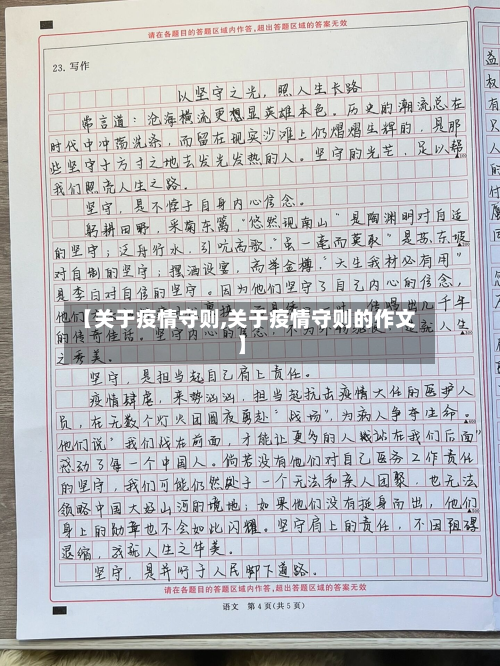 请在各题目的答题区域内作答,超出答题区域的答案无效
23. 写作
以坚守之光，照人生长路
常言道：沧海横流更想显英雄本色。历史的潮流总在
时代中冲荡洗涤，而留在现实沙滩上仍熠熠生辉的，是那
些坚守于方寸之地去发光发热的人。坚守的光芒，足以
我们照亮人生之路。
坚守，是不悖于自身内心信念。
躬耕田野，采菊东篱，“悠然现南山”是陶渊明对自适
的坚守；泛舟行水，引吭高歌，“虽一毫而莫取”是苏东坡
对自制的坚守；摆酒设宴，高举金樽，“天生我材必有用”
是李白对自信的坚守。因为他们坚守了自己内心的信念，
他们
几千年
的传奇佳话。坚守内心的信念，
就人生
之秀美。
【关于疫情守则,关于疫情守则的作文
】
坚守，是担当起自己肩上责任。
疫情肆虐，来势汹汹，担当起抗击疫情大任的医护人
员，在无数个灯火团圆夜勇赴“战场”，为病人争夺生命。
他们说“我们战在前面，才能让更多的人站在我们后面”
感动了每一个中国人。倘若没有他们对自己医务工作责任
的坚守，我们可能仍然处于一个无法和亲人团聚，也无法
领略中国大好山河的境地；如果他们没有挺身而出，他们
身上的勋章也不会如此闪耀。坚守肩上的责任，不因阻碍
退缩，成就人生之华美。
坚守，是并行于人民脚下道路。
请在各题目的答题区域内作答,超出答题区域的答案无效
语文 第4页(共5页)